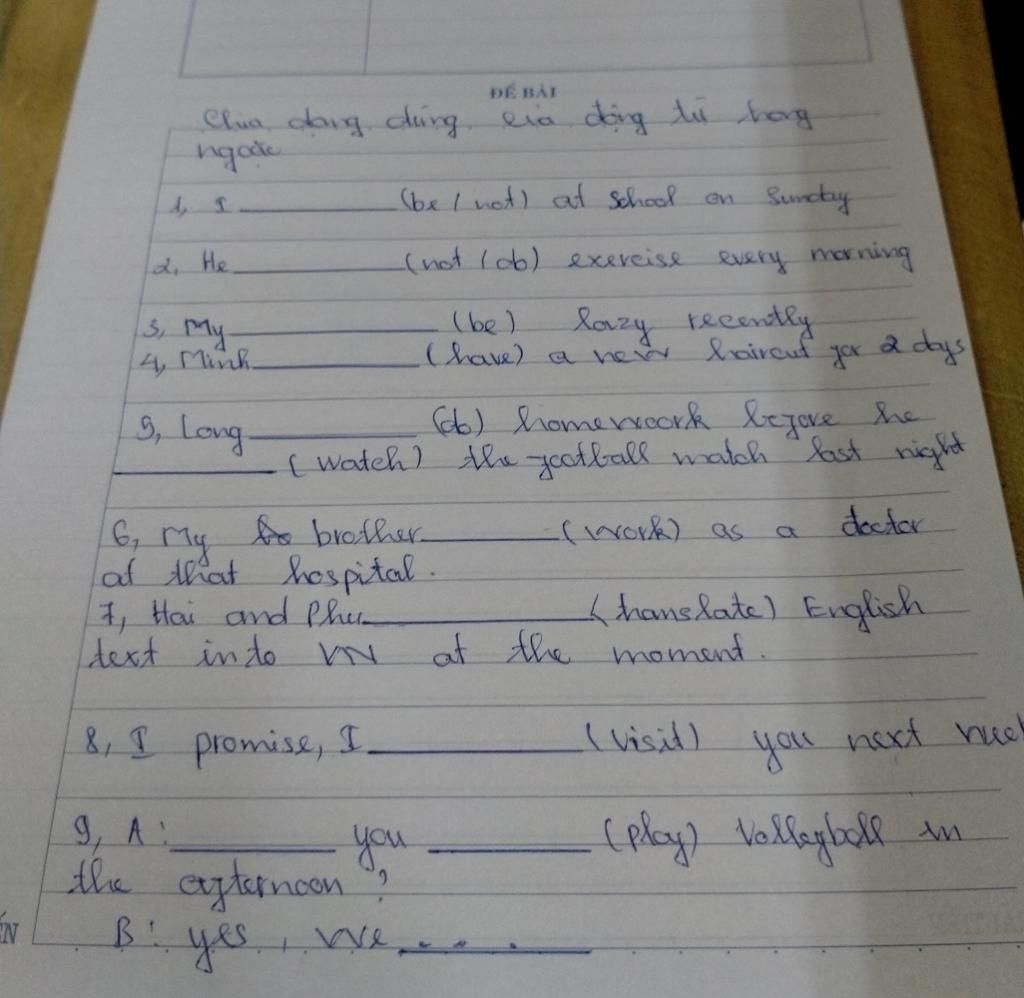 ĐỀ BÀI
Chia dạng đúng của động từ trong
ngoặc
1, I __________ (be / not) at school on Sunday
2, He __________ (not / do) exercise every morning
3, My __________ (be) lazy recently
4, Minh __________ (have) a new haircut for 2 days
5, Long __________ (do) homework before he
__________ (watch) the football match last night
6, My brother __________ (work) as a doctor
at that hospital.
7, Hai and Phu __________ (translate) English
text into VN at the moment.
8, I promise, I __________ (visit) you next
9, A: __________ you __________ (play) volleyball in
the afternoon ?
B: yes, we __________